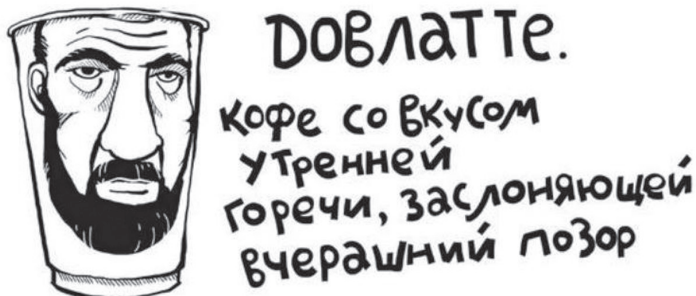 Довлатте.
кофе со вкусом
утренней
горечи, заслоняющей
вчерашний позор